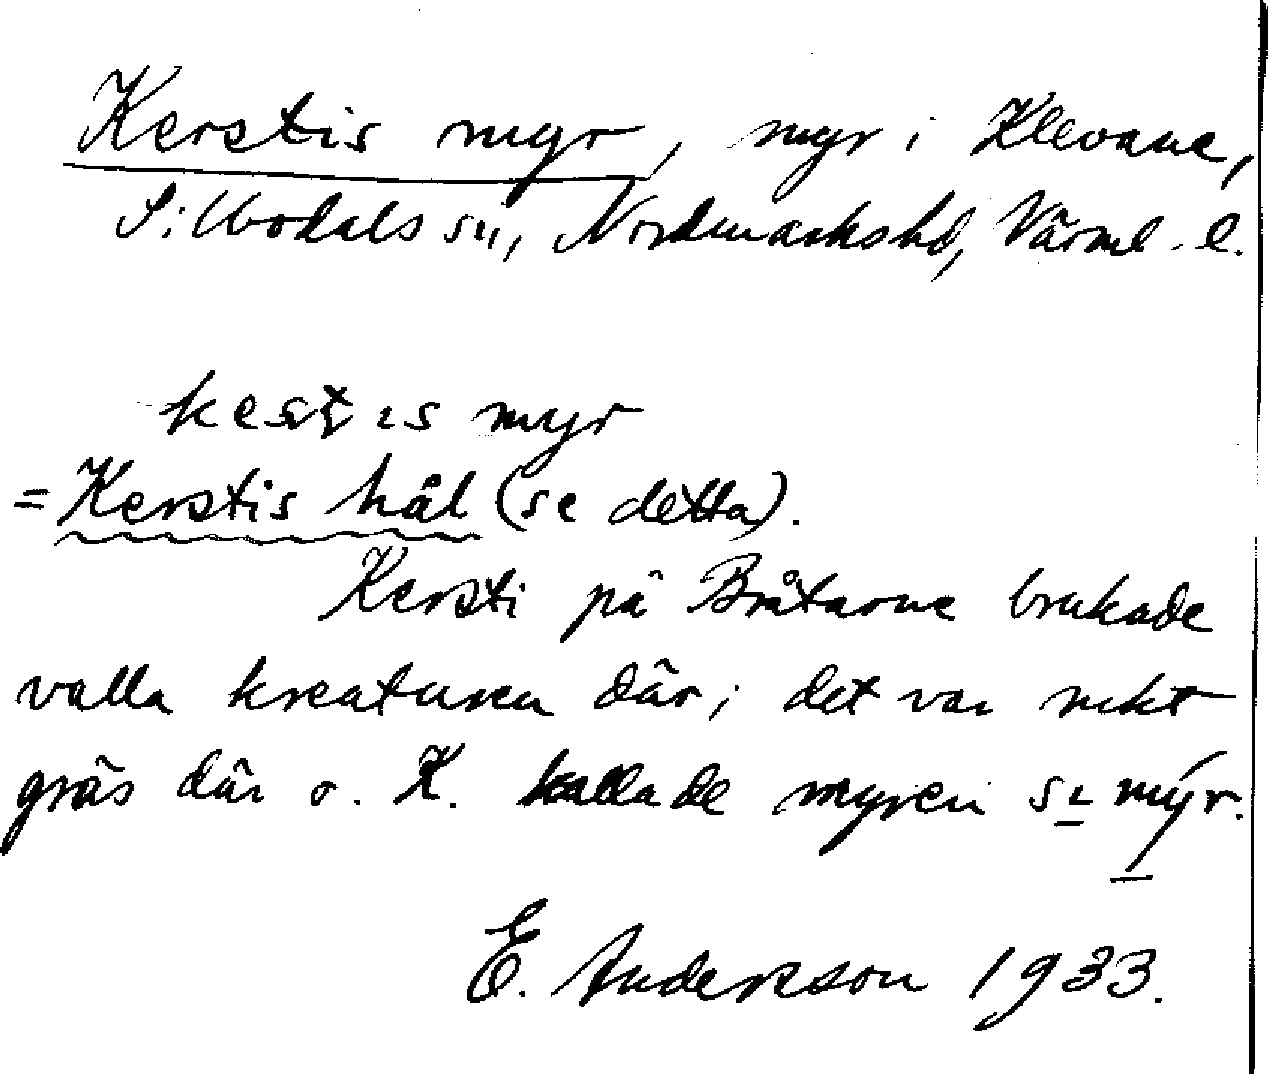 Kerstis myr, myr i Klevane,
Sillbodals sn, Nordmarkshd, Värml. l.
kestis myr
= Kerstis hål (se detta).
Kersti på Bråtarne brukade
valla kreaturen där; det var mkt
gräs där o. K. kallade myren sı mýr.
E. Andersson 1933.